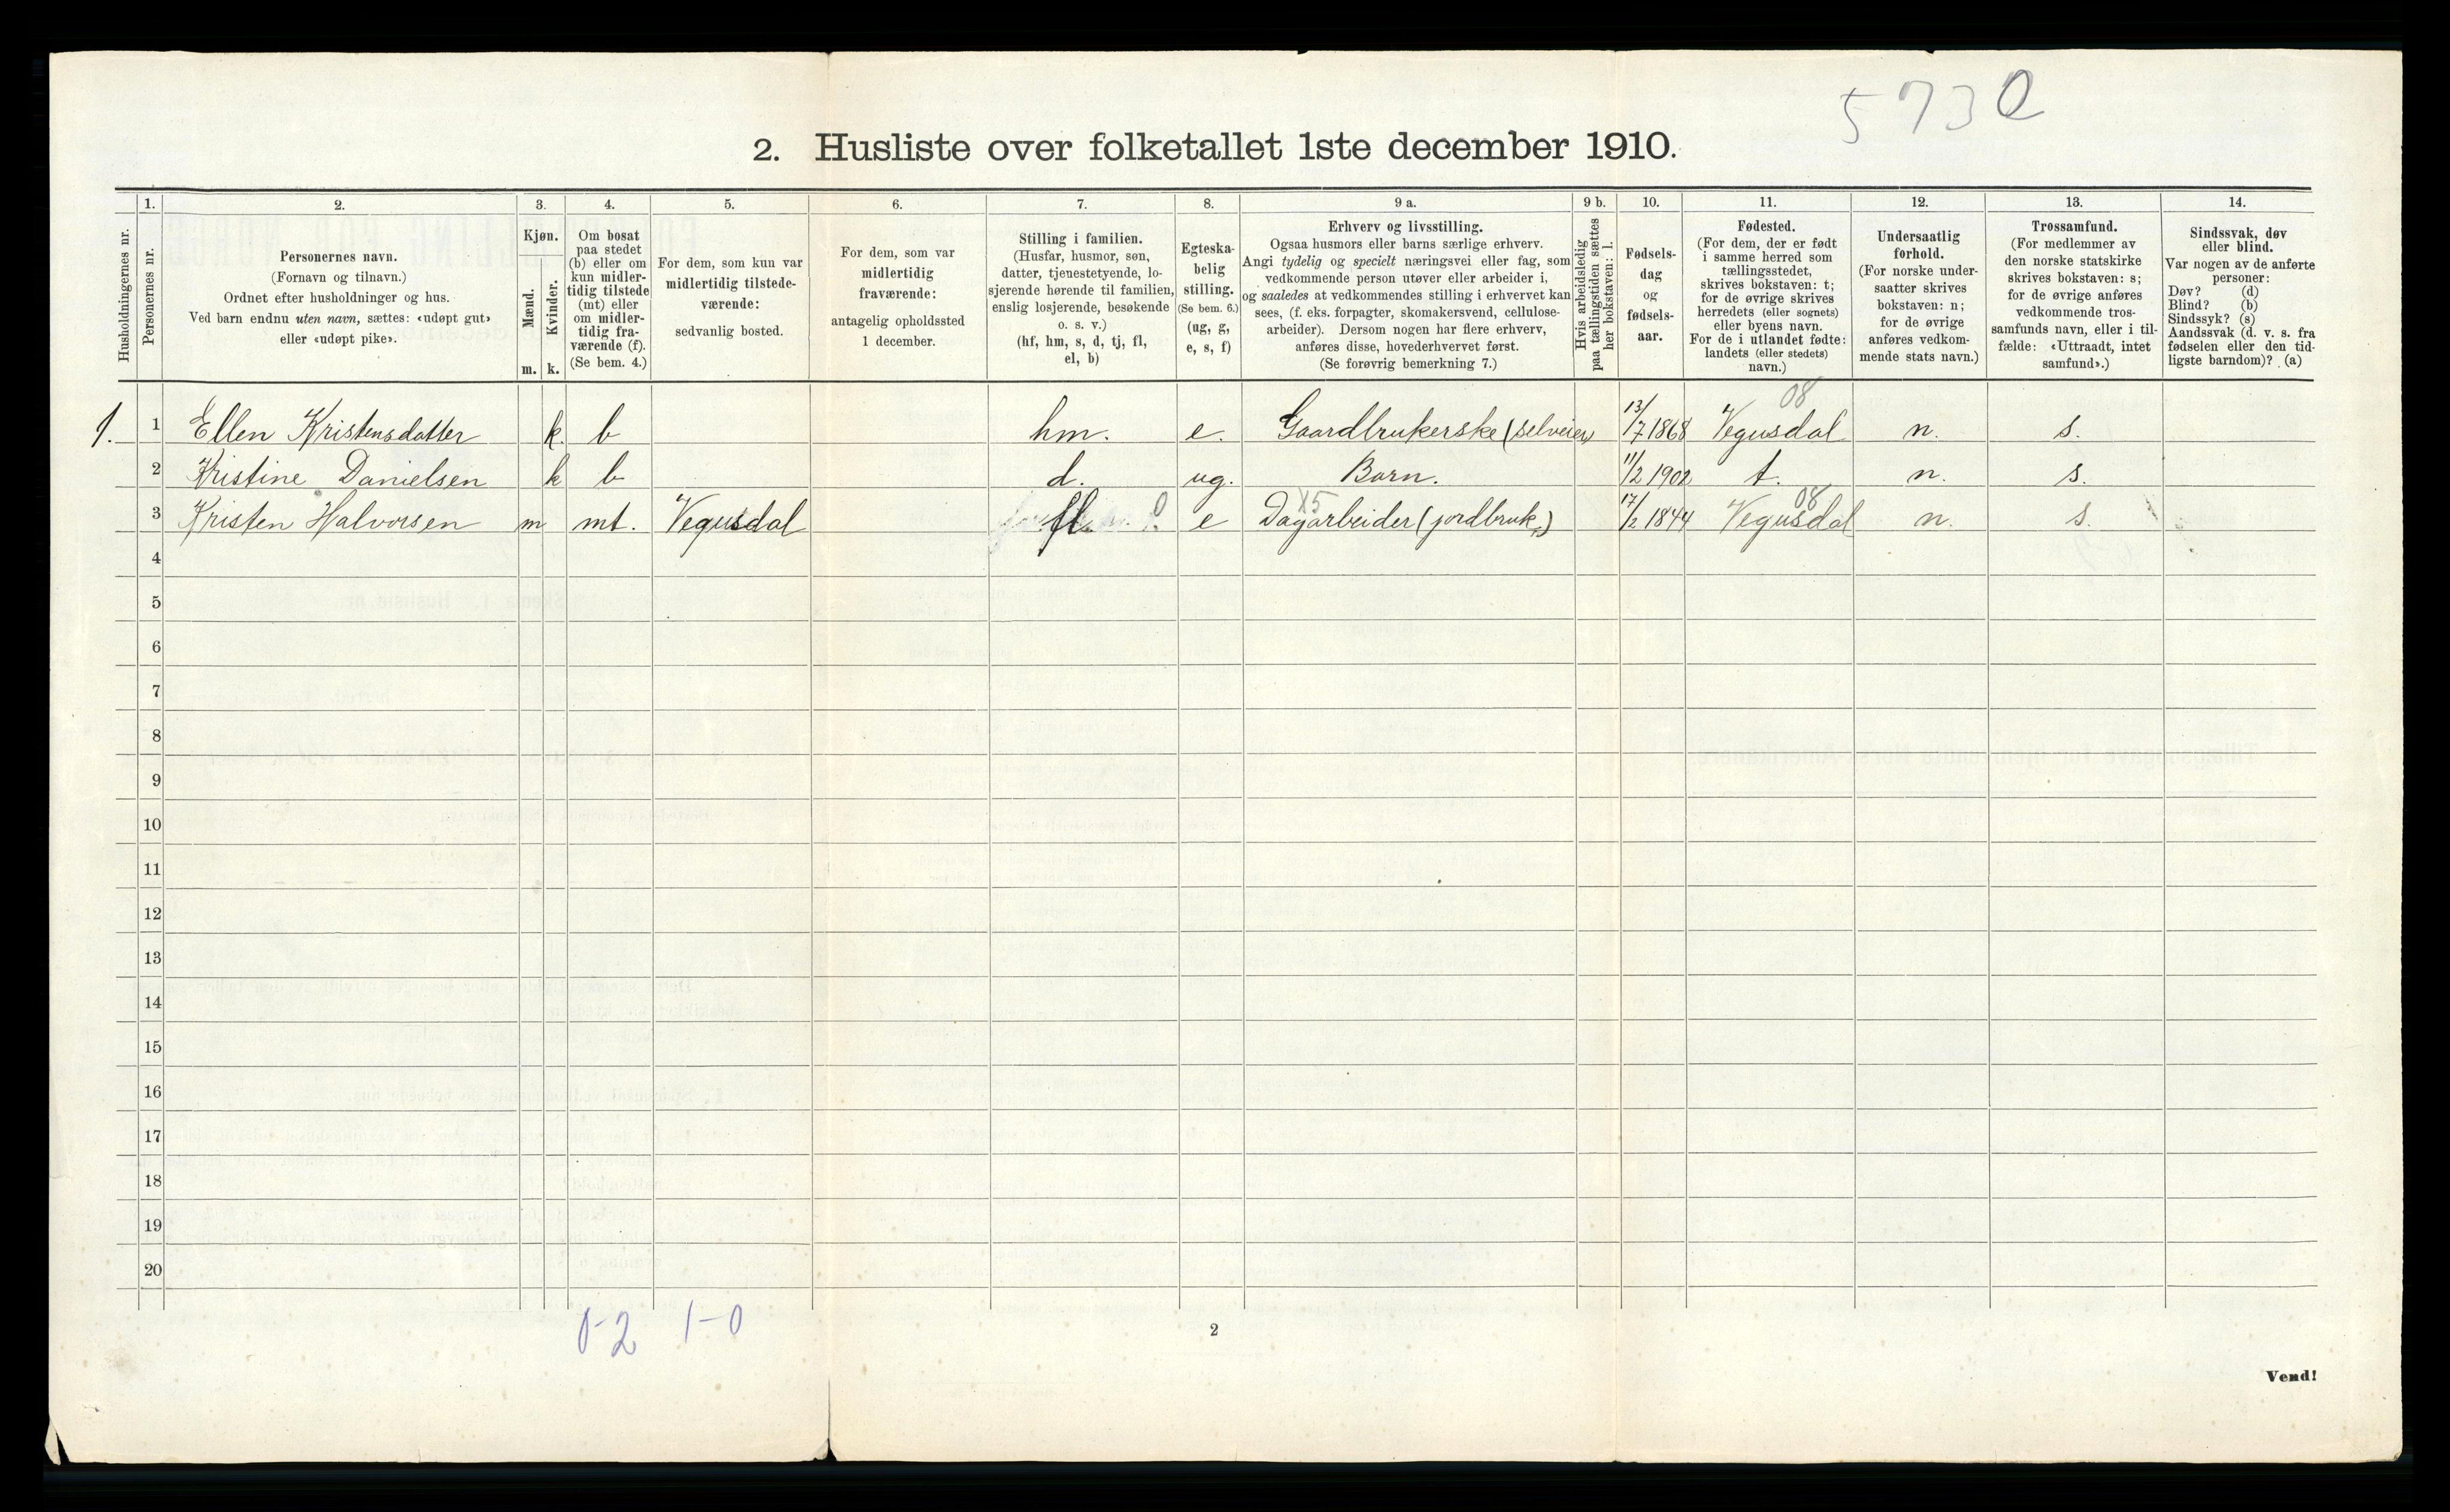 5730
2. Husliste over folketallet 1ste december 1910.
Husholdningernes nr.
1.
Personernes nr.
2.
Personernes navn.
(Fornavn og tilnavn.)
Ordnet efter husholdninger og hus.
Ved barn endnu uten navn, sættes: «udøpt gut»
eller «udøpt pike».
3.
Kjøn.
Mænd.
Kvinder.
m. k.
4.
Om bosat
paa stedet
(b) eller om
kun midler-
tidig tilstede
(mt) eller
om midler-
tidig fra-
værende (f).
(Se bem. 4.)
5.
For dem, som kun var
midlertidig tilstede-
værende:
sedvanlig bosted.
6.
For dem, som var
midlertidig
fraværende:
antagelig opholdssted
1 december.
7.
Stilling i familien.
(Husfar, husmor, søn,
datter, tjenestetyende, lo-
sjerende hørende til familien,
enslig losjerende, besøkende
o. s. v.)
(hf, hm, s, d, tj, fl,
el, b)
8.
Egteska-
belig
stilling.
(Se bem. 6.)
(ug, g,
e, s, f)
9 a.
Erhverv og livsstilling.
Ogsaa husmors eller barns særlige erhverv.
Angi tydelig og specielt næringsvei eller fag, som
vedkommende person utøver eller arbeider i,
og saaledes at vedkommendes stilling i erhvervet kan
sees, (f. eks. forpagter, skomakersvend, cellulose-
arbeider). Dersom nogen har flere erhverv,
anføres disse, hovederhvervet først.
(Se forøvrig bemerkning 7.)
9 b.
Hvis arbeidsledig
paa tællingstiden sættes
her bokstaven: l.
10.
Fødsels-
dag
og
fødsels-
aar.
11.
Fødested.
(For dem, der er født
i samme herred som
tællingsstedet,
skrives bokstaven: t;
for de øvrige skrives
herredets (eller sognets)
eller byens navn.
For de i utlandet fødte:
landets (eller stedets)
navn.)
12.
Undersaatlig
forhold.
(For norske under-
saatter skrives
bokstaven: n;
for de øvrige
anføres vedkom-
mende stats navn.)
13.
Trossamfund.
(For medlemmer av
den norske statskirke
skrives bokstaven: s;
for de øvrige anføres
vedkommende tros-
samfunds navn, eller i til-
fælde: «Uttraadt, intet
samfund».)
14.
Sindssvak, døv
eller blind.
Var nogen av de anførte
personer:
Døv? (d)
Blind? (b)
Sindssyk? (s)
Aandssvak (d. v. s. fra
fødselen eller den tid-
ligste barndom)? (a)
08
1. 1 Ellen Kristensdatter k. b hm. e. Gaardbrukerske (selveier) 13/7 1868 Vegusdal n. s.
2 Kristine Danielsen k b d. ug. Barn. 11/2 1902 t. n. s.
X5 08
3 Kristen Halvorsen m mt. Vegusdal fl. e Dagarbeider (jordbruk.) 17/2 1844 Vegusdal n. s.
4
5
6
7
8
9
10
11
12
13
14
15
16
17
18
19
20
0-2 1-0
2
Vend!